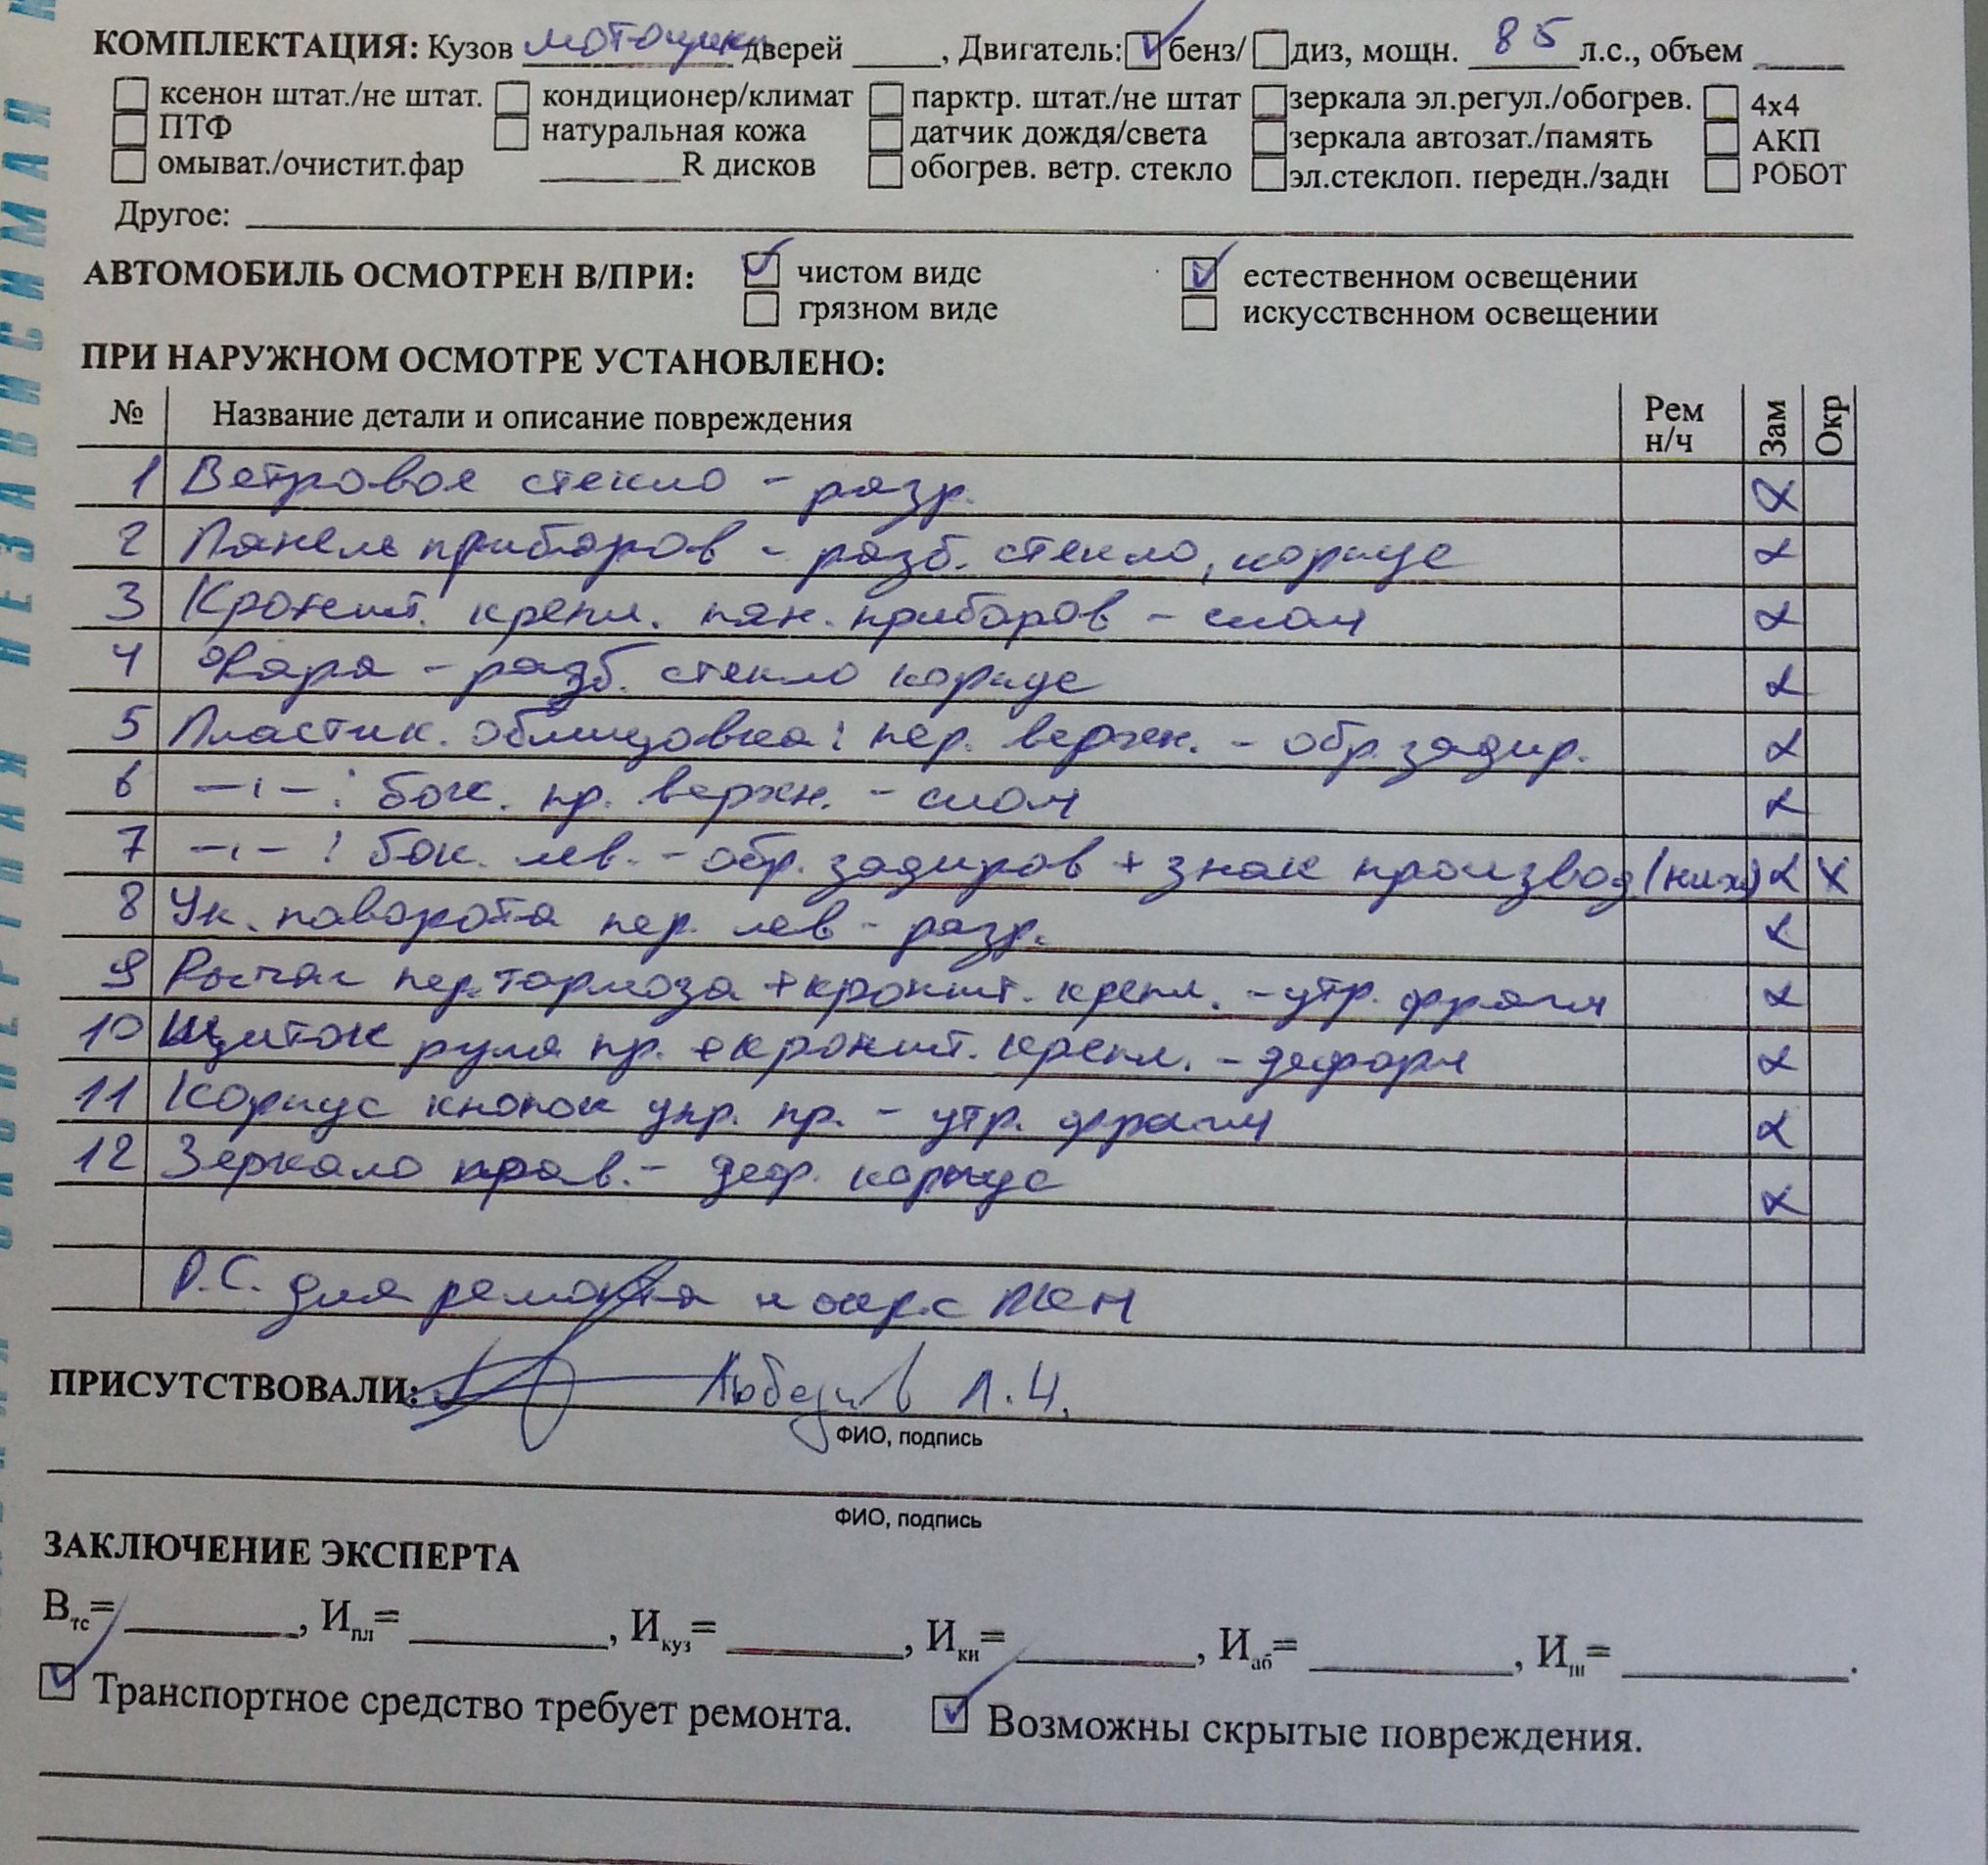 КОМПЛЕКТАЦИЯ: Кузов мотоцикл дверей _____, Двигатель: бенз/ диз, мощн. 85 л.с., объем _____
ксенон штат./не штат. кондиционер/климат парктр. штат./не штат зеркала эл.регул./обогрев. 4х4
ПТФ натуральная кожа датчик дождя/света зеркала автозат./память АКП
омыват./очистит.фар ________R дисков обогрев. ветр. стекло эл.стеклоп. передн./задн РОБОТ
Другое:
АВТОМОБИЛЬ ОСМОТРЕН В/ПРИ: чистом виде естественном освещении
грязном виде искусственном освещении
ПРИ НАРУЖНОМ ОСМОТРЕ УСТАНОВЛЕНО:
№ Название детали и описание повреждения Рем н/ч Зам Окр
1 Ветровое стекло - разр. х
2 Панель приборов - разб. стекло, корпус х
3 Кроншт. крепл. пан. приборов - слом х
4 Фара - разб. стекло корпус х
5 Пластик. облицовка: пер. верхн. - обр. задир. х
6 -ı- : бок. пр. верхн. - слом х
7 -ı- : бок. лев. - обр. задиров + знак производ (нижн) х х
8 Ук. поворота пер. лев - разр. х
9 Рычаг пер. тормоза + кроншт. крепл. - утр. фрагм х
10 Щиток руля пр. + кроншт. крепл. - деформ х
11 Корпус кнопок упр. пр. - утр. фрагм х
12 Зеркало прав. - деф. корпус х
Р.С. для ремонта и окр.с
ПРИСУТСТВОВАЛИ:
ФИО, подпись
ФИО, подпись
ЗАКЛЮЧЕНИЕ ЭКСПЕРТА
Втс= _____, Ипл= _____, Икуз= _____, Икн= _____, Иаб= _____, Иш= _____.
Транспортное средство требует ремонта. Возможны скрытые повреждения.